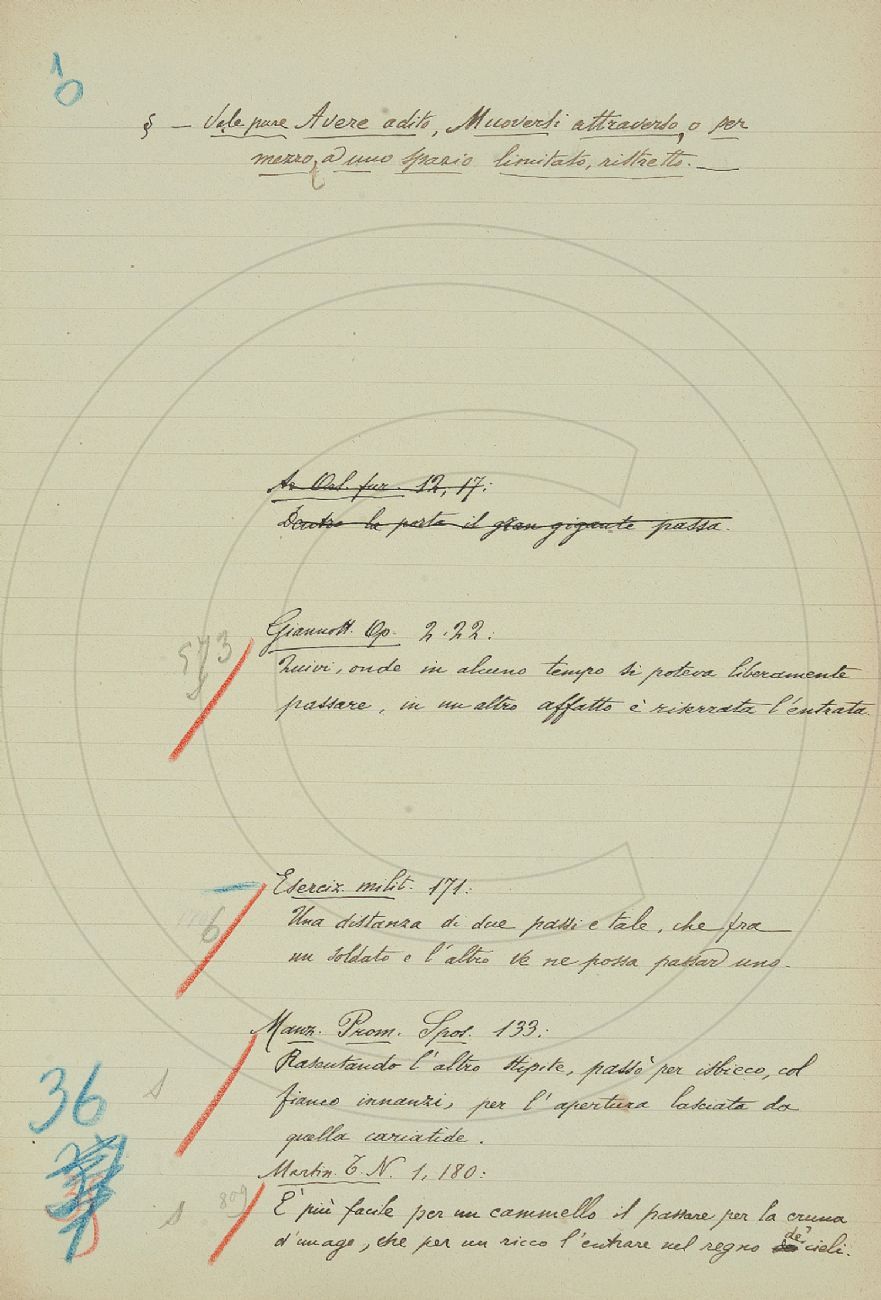 10
§ — Vale pure Avere adito, Muoversi attraverso, o per
mezzo, a uno spazio limitato, ristretto. —
Ar. Orl. fur. 12, 17:
Dentro la porta il gran gigante passa.
573
Giannott. Op. 2. 22:
Quivi, onde in alcuno tempo si poteva liberamente
passare, in un altro affatto è riserrata l'entrata.
6
Eserciz. milit. 171:
Una distanza di due passi e tale, che fra
un soldato e l'altro ve ne possa passar uno.
Manz. Prom. Spos. 133:
Rasentando l'altro stipite, passò per isbieco, col
36
s
fianco innanzi, per l'apertura lasciata da
quella cariatide.
Martin. T. N. 1, 180:
809
s
È più facile per un cammello il passare per la cruna
d'un ago, che per un ricco l'entrare nel regno de' cieli.